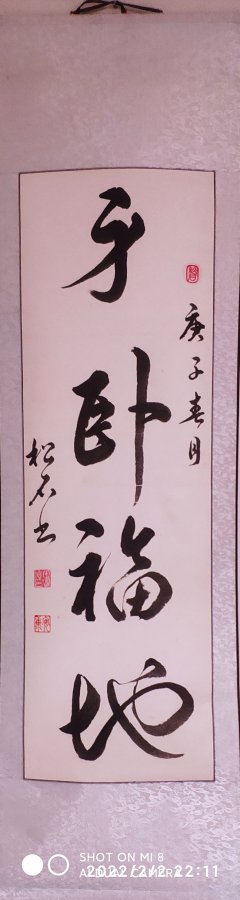 庚子春月
牙卧福地
松石书
SHOT ON MI 8
AI DUAL CAMERA
2022/2/2 22:11